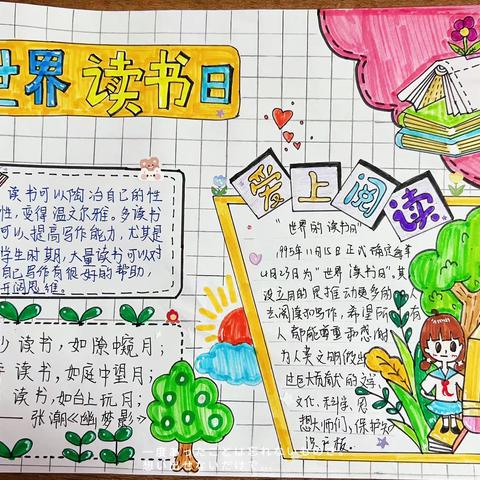 世界读书日
读书可以陶冶自己的性
性，变得温文尔雅。多读书
可以提高写作能力，尤其是
学生时期，大量读书可以对
自己写作有很好的帮助，
开阔思维。
少读书，如隙中窥月；
读书，如庭中望月；
读书，如台上玩月；
——张潮《幽梦影》
爱上阅读
"世界的读书日"
1995年11月15日正式确定每年
4月23日为"世界读书日"，其
设立目的是推动更多的人
去阅读和写作，希望所有
人都能尊重和感谢
为人类文明做出
过巨大贡献的文学、
文化、科学、思
想大师们，保护知
识产权。
一度あったことは忘れない
想い出せないだけで...